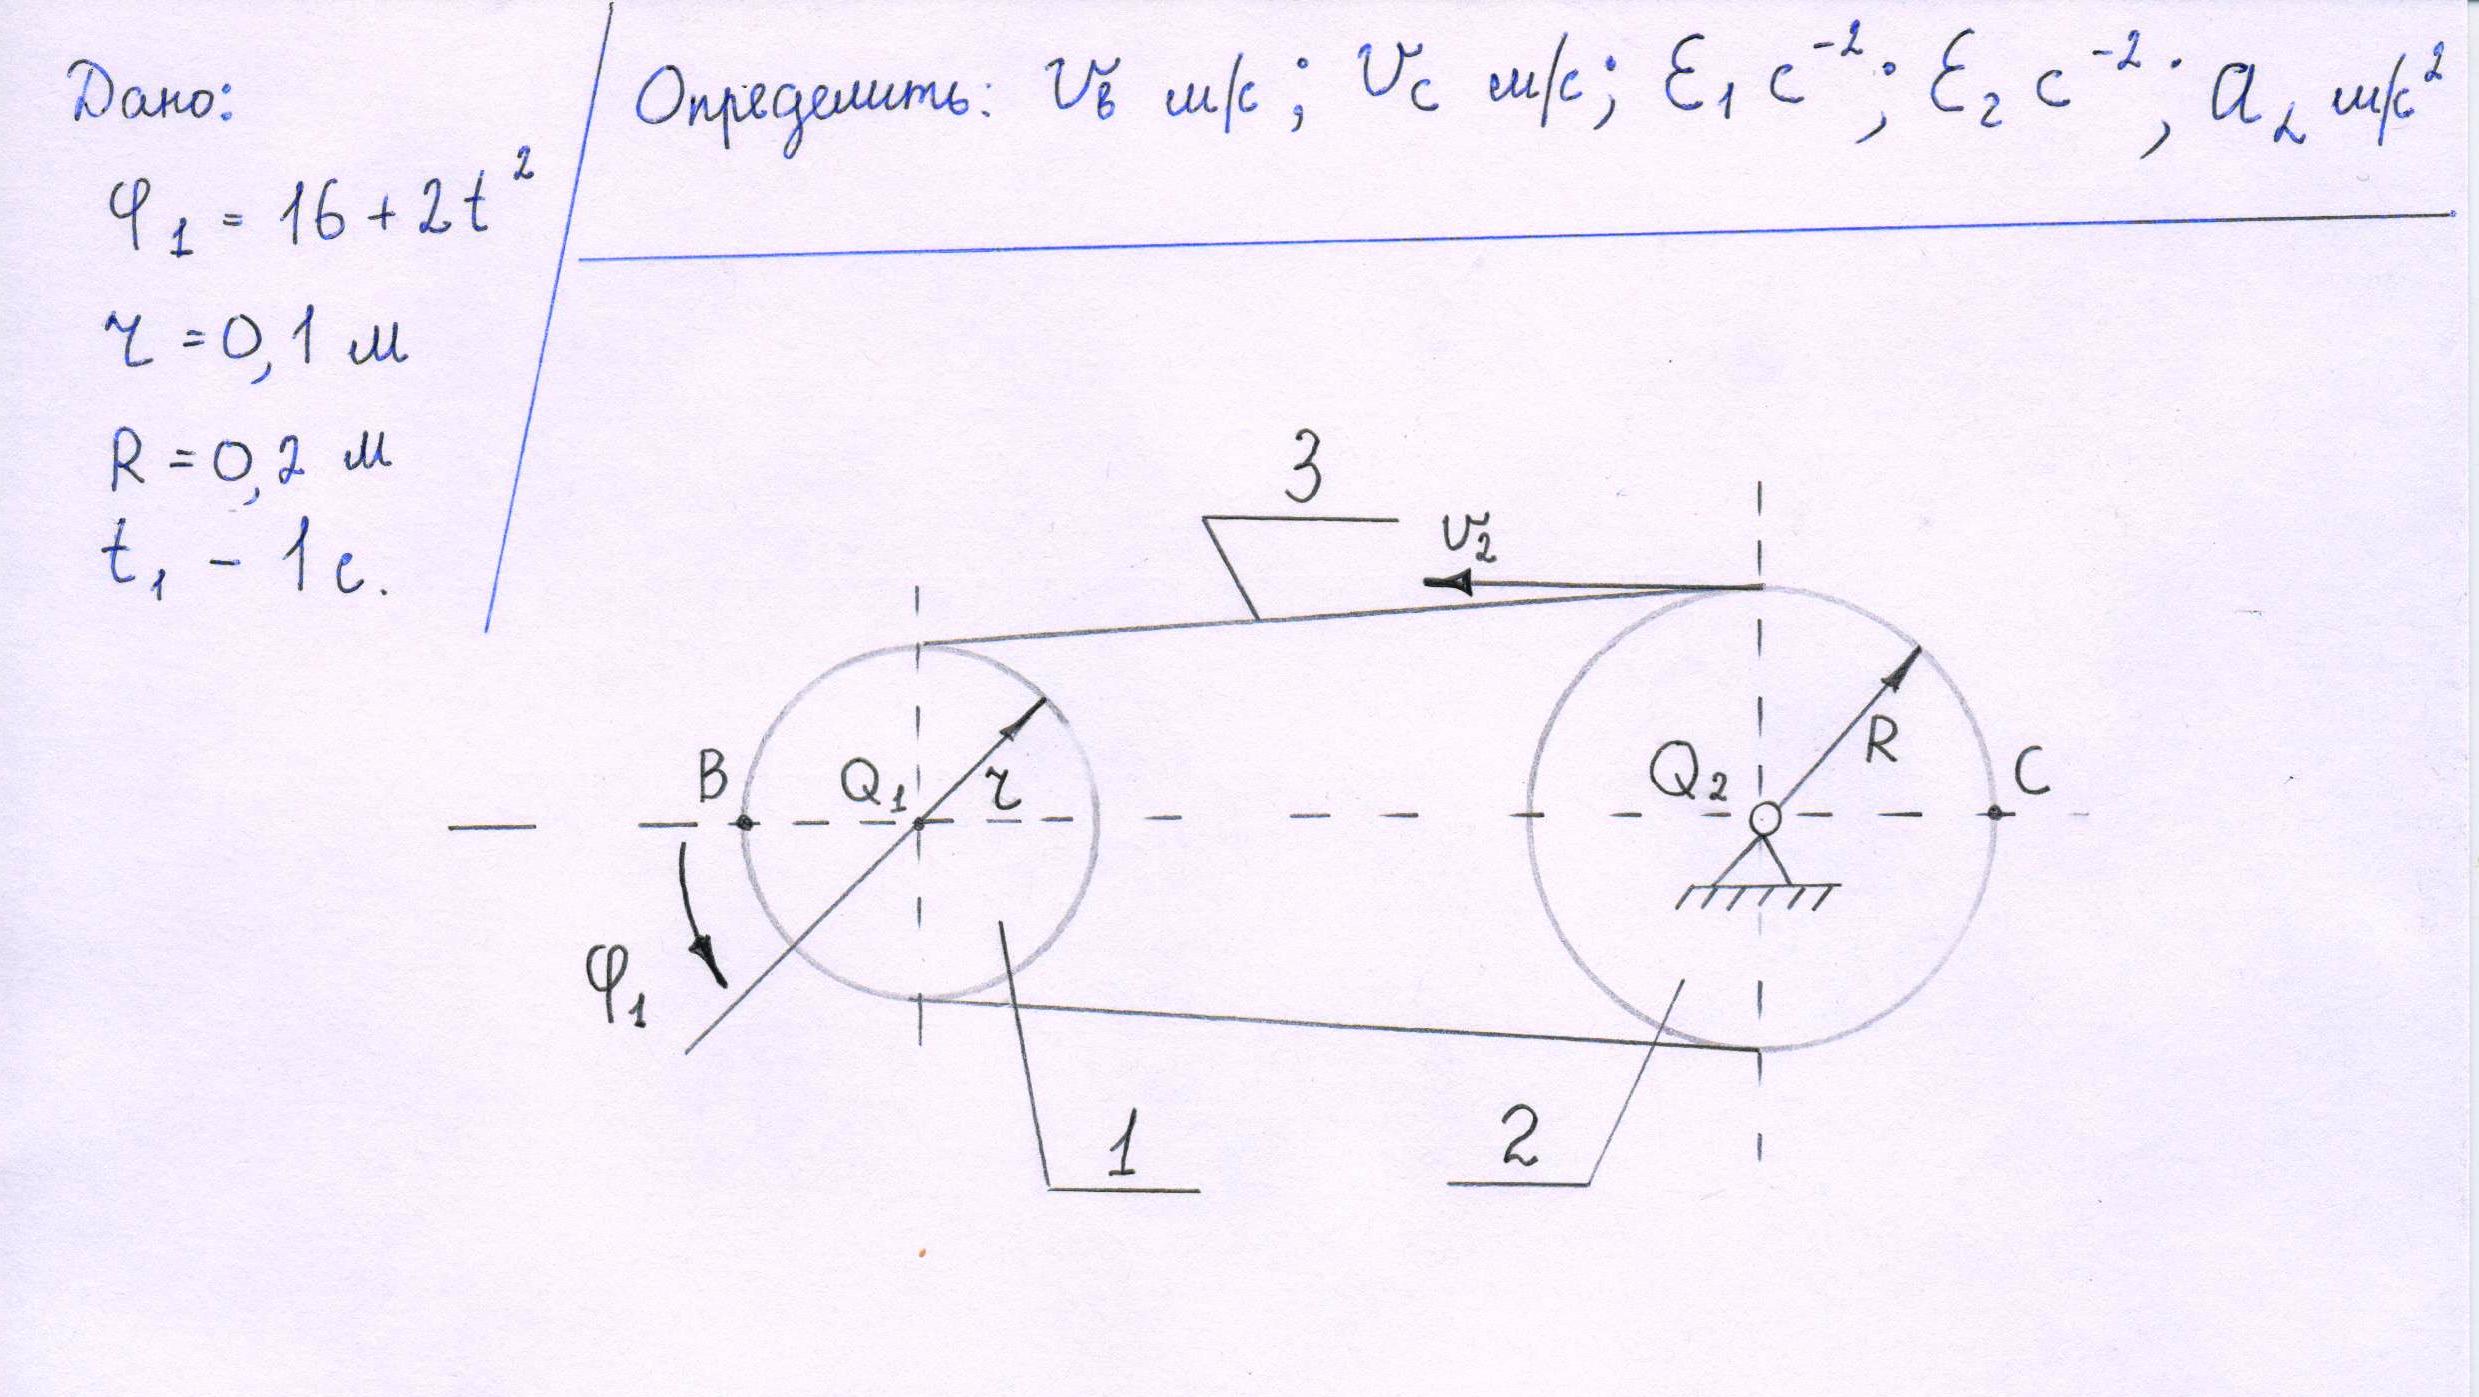 Дано:
φ₁ = 16 + 2t²
r = 0,1 м
R = 0,2 м
t₁ - 1 с.
Определить: Vв м/с; Vс м/с; Ɛ₁ с⁻²; Ɛ₂ с⁻²; a₂ м/с²
3
V₂
B
Q₁
r
Q₂
R
C
φ₁
1
2